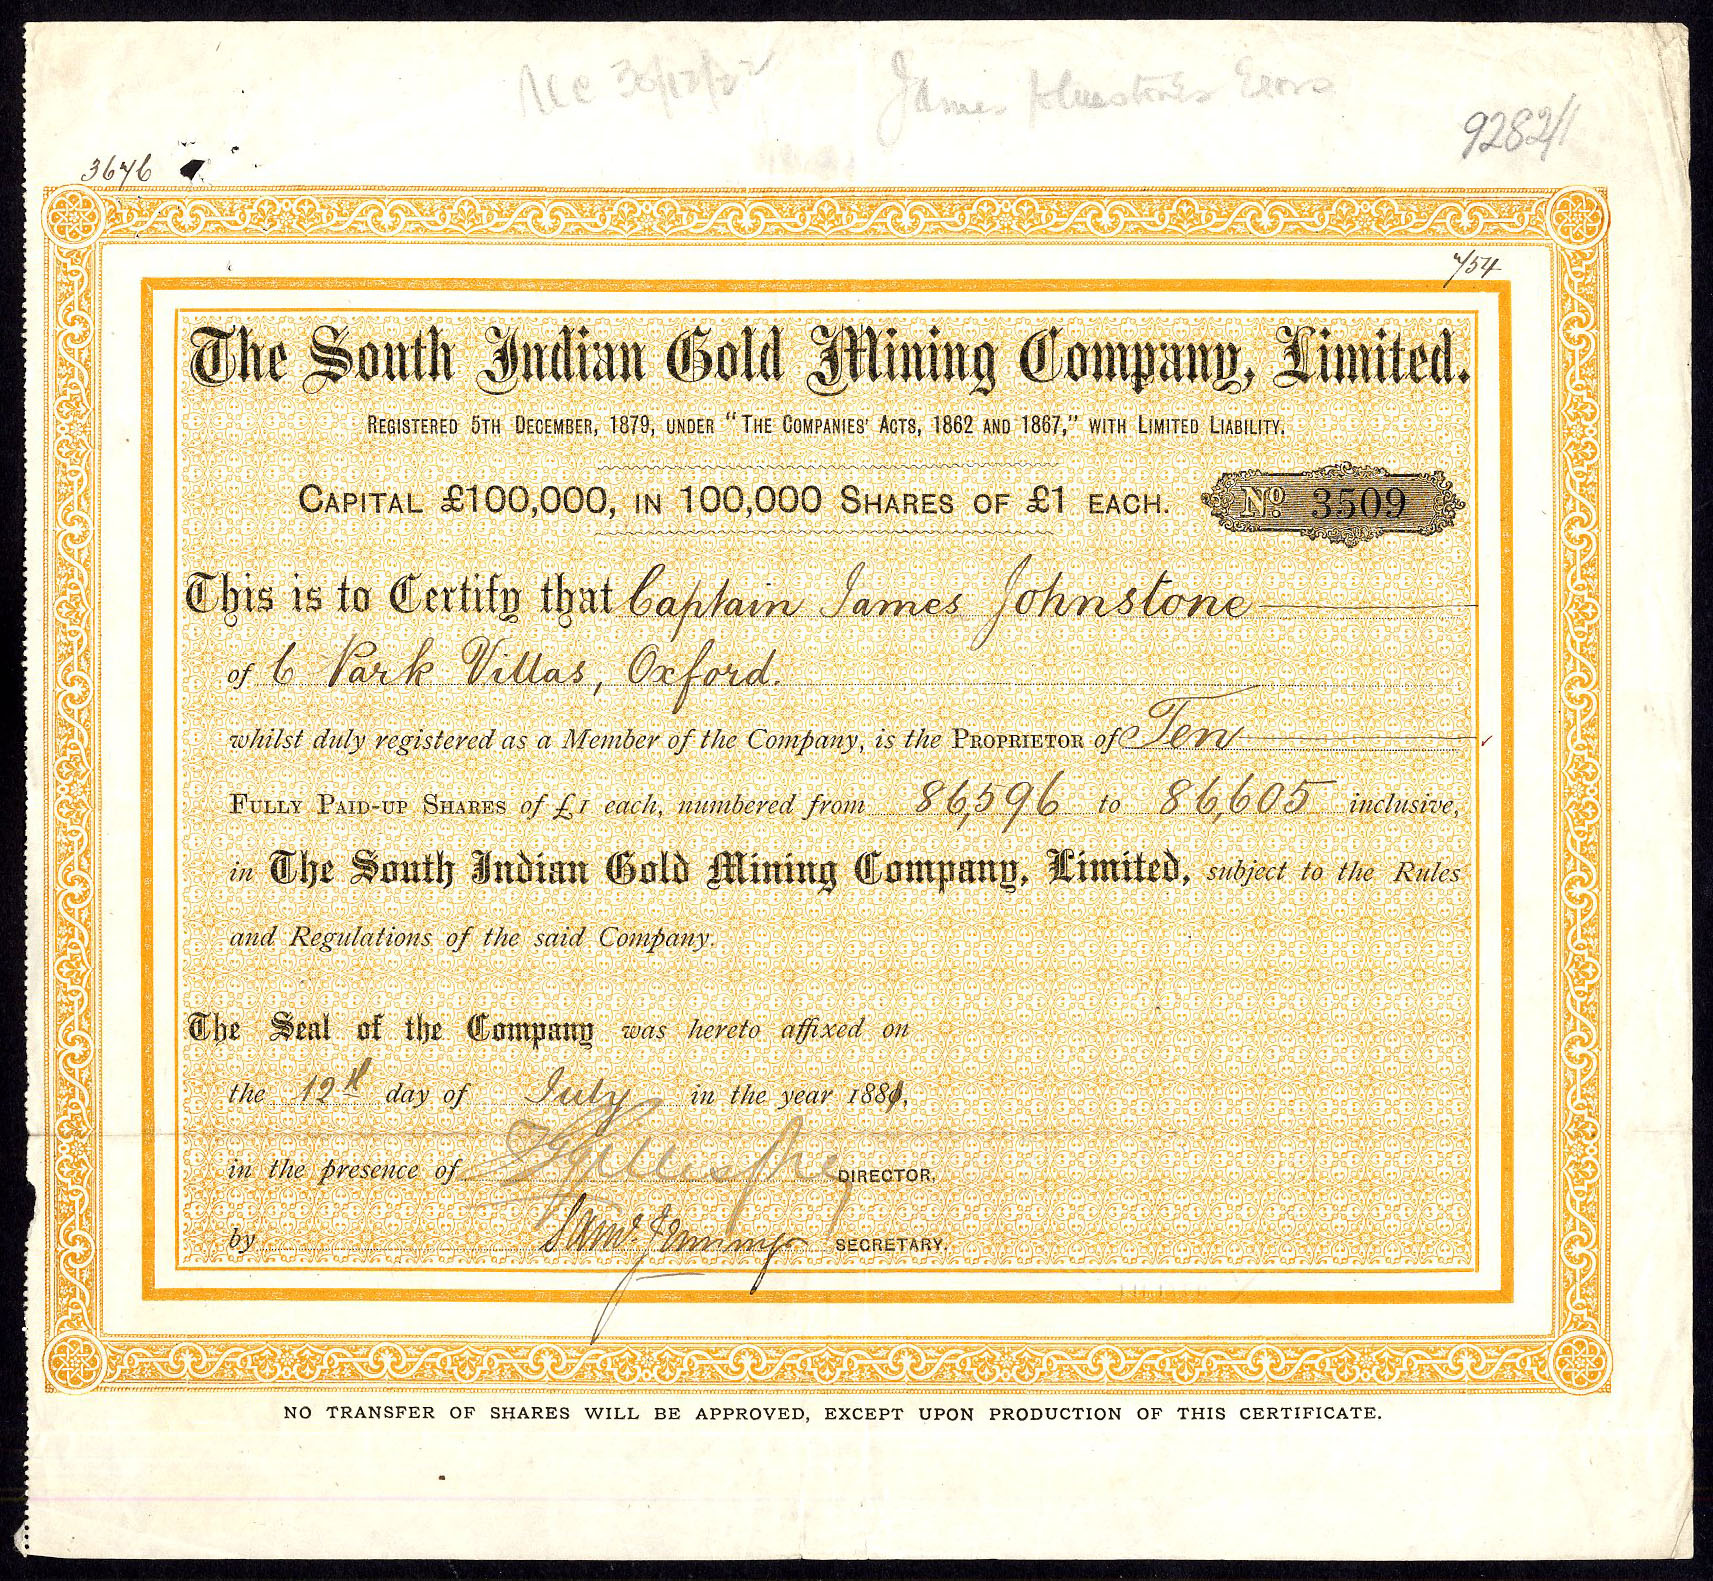 James Johnstone's Exors
9282/1
3676
754
The South Indian Gold Mining Company, Limited.
Registered 5th December, 1879, under "The Companies' Acts, 1862 and 1867," with Limited Liability.
Capital £100,000, in 100,000 Shares of £1 each.
No. 3509
This is to Certify that Captain James Johnstone
of 6 Park Villas, Oxford.
whilst duly registered as a Member of the Company, is the Proprietor of Ten
Fully Paid-up Shares of £1 each, numbered from 86,596 to 86,605 inclusive,
in The South Indian Gold Mining Company, Limited, subject to the Rules
and Regulations of the said Company.
The Seal of the Company was hereto affixed on
the 12th day of July in the year 1881,
in the presence of Gillespie DIRECTOR,
by Saml. Jennings SECRETARY.
NO TRANSFER OF SHARES WILL BE APPROVED, EXCEPT UPON PRODUCTION OF THIS CERTIFICATE.